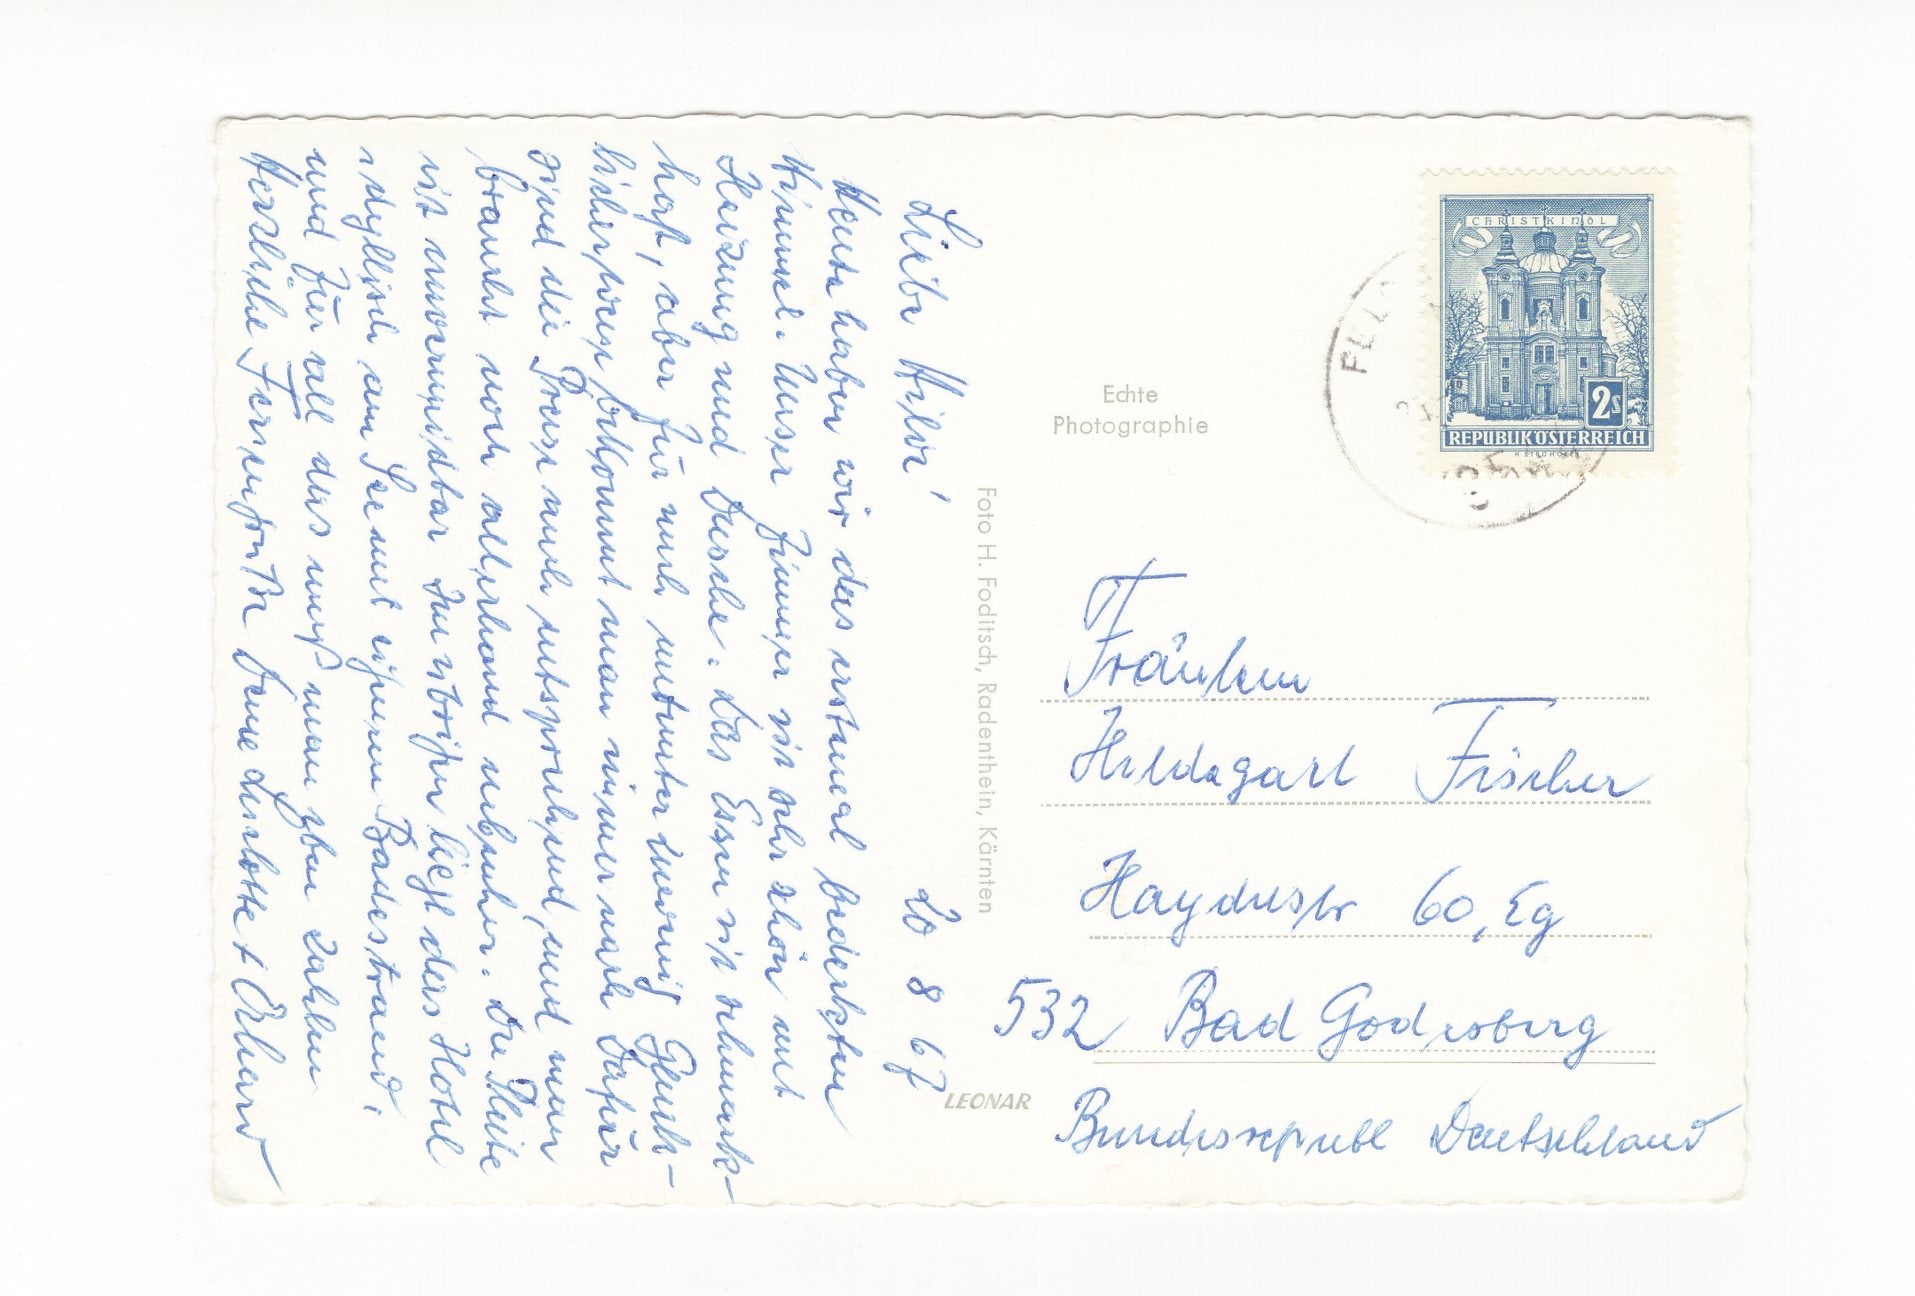 Liebe Hilde! 20 8 67
Heute haben wir das erstemal bedeckten
Himmel. Unser Zimmer ist sehr schön mit
Heizung und Dusche. Das Essen ist schmack-
haft, aber für mich mitunter zu wenig Fleisch-
bekommt man immer nach Dafür
sind die Preise auch entsprechend, und man
braucht noch allerhand nebenher. Die Pleite
ist unvermeidbar. Im übrigen liegt das Hotel
idyllisch am See mit eigenem Badestrand,
und für all das muß man eben zahlen
Herzliche Feriengrüße Deine Liselotte + Erhard
Echte
Photographie
Foto H. Foditsch, Radenthein, Kärnten
LEONAR
CHRISTKINDL
2s
REPUBLIK ÖSTERREICH
Fräulein
Hildegart Fischer
Haydnstr 60, Eg
532 Bad Godesberg
Bundesrepubl Deutschland